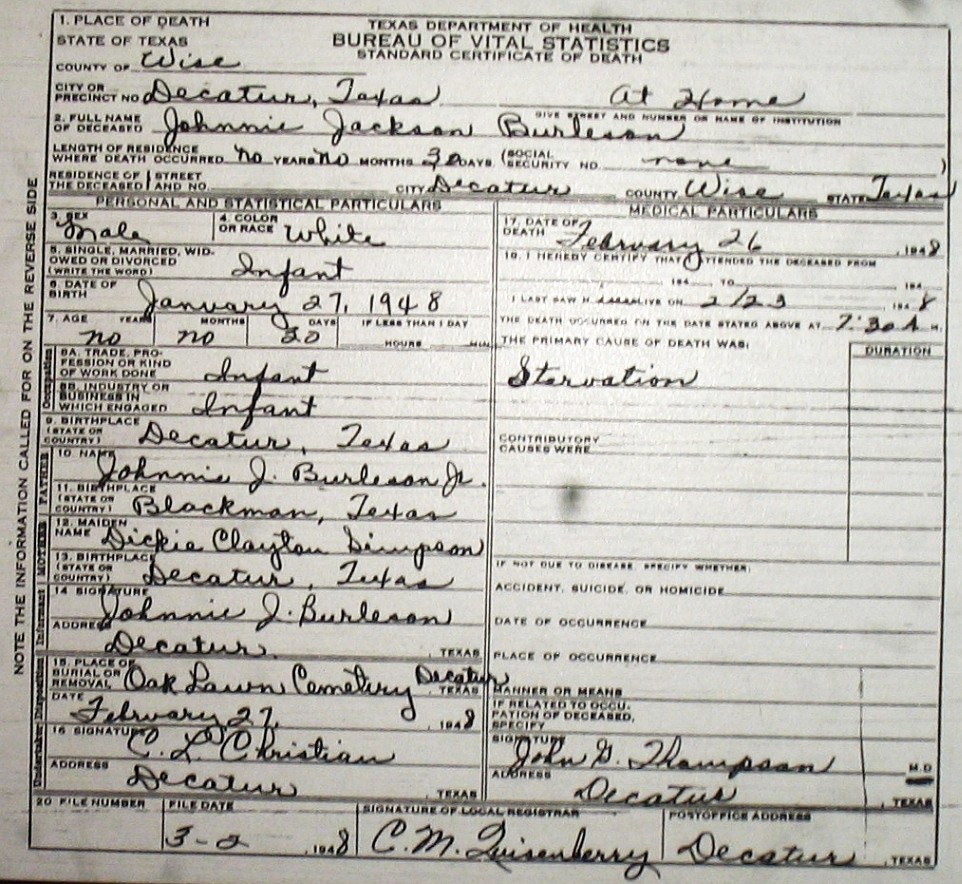 TEXAS DEPARTMENT OF HEALTH
BUREAU OF VITAL STATISTICS
STANDARD CERTIFICATE OF DEATH
1. PLACE OF DEATH
STATE OF TEXAS
COUNTY OF Wise
CITY OR PRECINCT NO. Decatur, Texas At Home
GIVE STREET AND NUMBER OR NAME OF INSTITUTION
2. FULL NAME OF DECEASED Johnnie Jackson Burleson
LENGTH OF RESIDENCE WHERE DEATH OCCURRED no YEARS no MONTHS 30 DAYS (SOCIAL SECURITY NO. none )
RESIDENCE OF THE DECEASED STREET AND NO. CITY Decatur COUNTY Wise STATE Texas
PERSONAL AND STATISTICAL PARTICULARS
3. SEX Male
4. COLOR OR RACE White
5. SINGLE, MARRIED, WIDOWED OR DIVORCED (WRITE THE WORD) Infant
6. DATE OF BIRTH January 27, 1948
7. AGE YEARS no MONTHS no DAYS 30 IF LESS THAN 1 DAY HOURS MIN.
8A. TRADE, PROFESSION OR KIND OF WORK DONE Infant
8B. INDUSTRY OR BUSINESS IN WHICH ENGAGED Infant
9. BIRTHPLACE (STATE OR COUNTRY) Decatur, Texas
10. NAME Johnnie J. Burleson Jr.
11. BIRTHPLACE (STATE OR COUNTRY) Blackman, Texas
12. MAIDEN NAME Dickie Clayton Simpson
13. BIRTHPLACE (STATE OR COUNTRY) Decatur, Texas
14 SIGNATURE Johnnie J. Burleson
ADDRESS Decatur, TEXAS
15. PLACE OF BURIAL OR REMOVAL Oak Lawn Cemetery Decatur, TEXAS
DATE February 27, 1948
16 SIGNATURE C. L. Christian
ADDRESS Decatur, TEXAS
MEDICAL PARTICULARS
17. DATE OF DEATH February 26, 1948
18. I HEREBY CERTIFY THAT I ATTENDED THE DECEASED FROM
194 TO 194
I LAST SAW H ALIVE ON 2/23 1948
THE DEATH OCCURRED ON THE DATE STATED ABOVE AT 7:30 A. M.
THE PRIMARY CAUSE OF DEATH WAS: DURATION
Starvation
CONTRIBUTORY CAUSES WERE
IF NOT DUE TO DISEASE, SPECIFY WHETHER:
ACCIDENT, SUICIDE, OR HOMICIDE
DATE OF OCCURRENCE
PLACE OF OCCURRENCE
MANNER OR MEANS
IF RELATED TO OCCUPATION OF DECEASED, SPECIFY
SIGNATURE John G. Thompson M.D
ADDRESS Decatur, TEXAS
20 FILE NUMBER
FILE DATE 3-2, 1948
SIGNATURE OF LOCAL REGISTRAR C. M. Quisenberry
POSTOFFICE ADDRESS Decatur, TEXAS
NOTE THE INFORMATION CALLED FOR ON THE REVERSE SIDE
Occupation
FATHER
MOTHER
Informant
Disposition
Undertaker